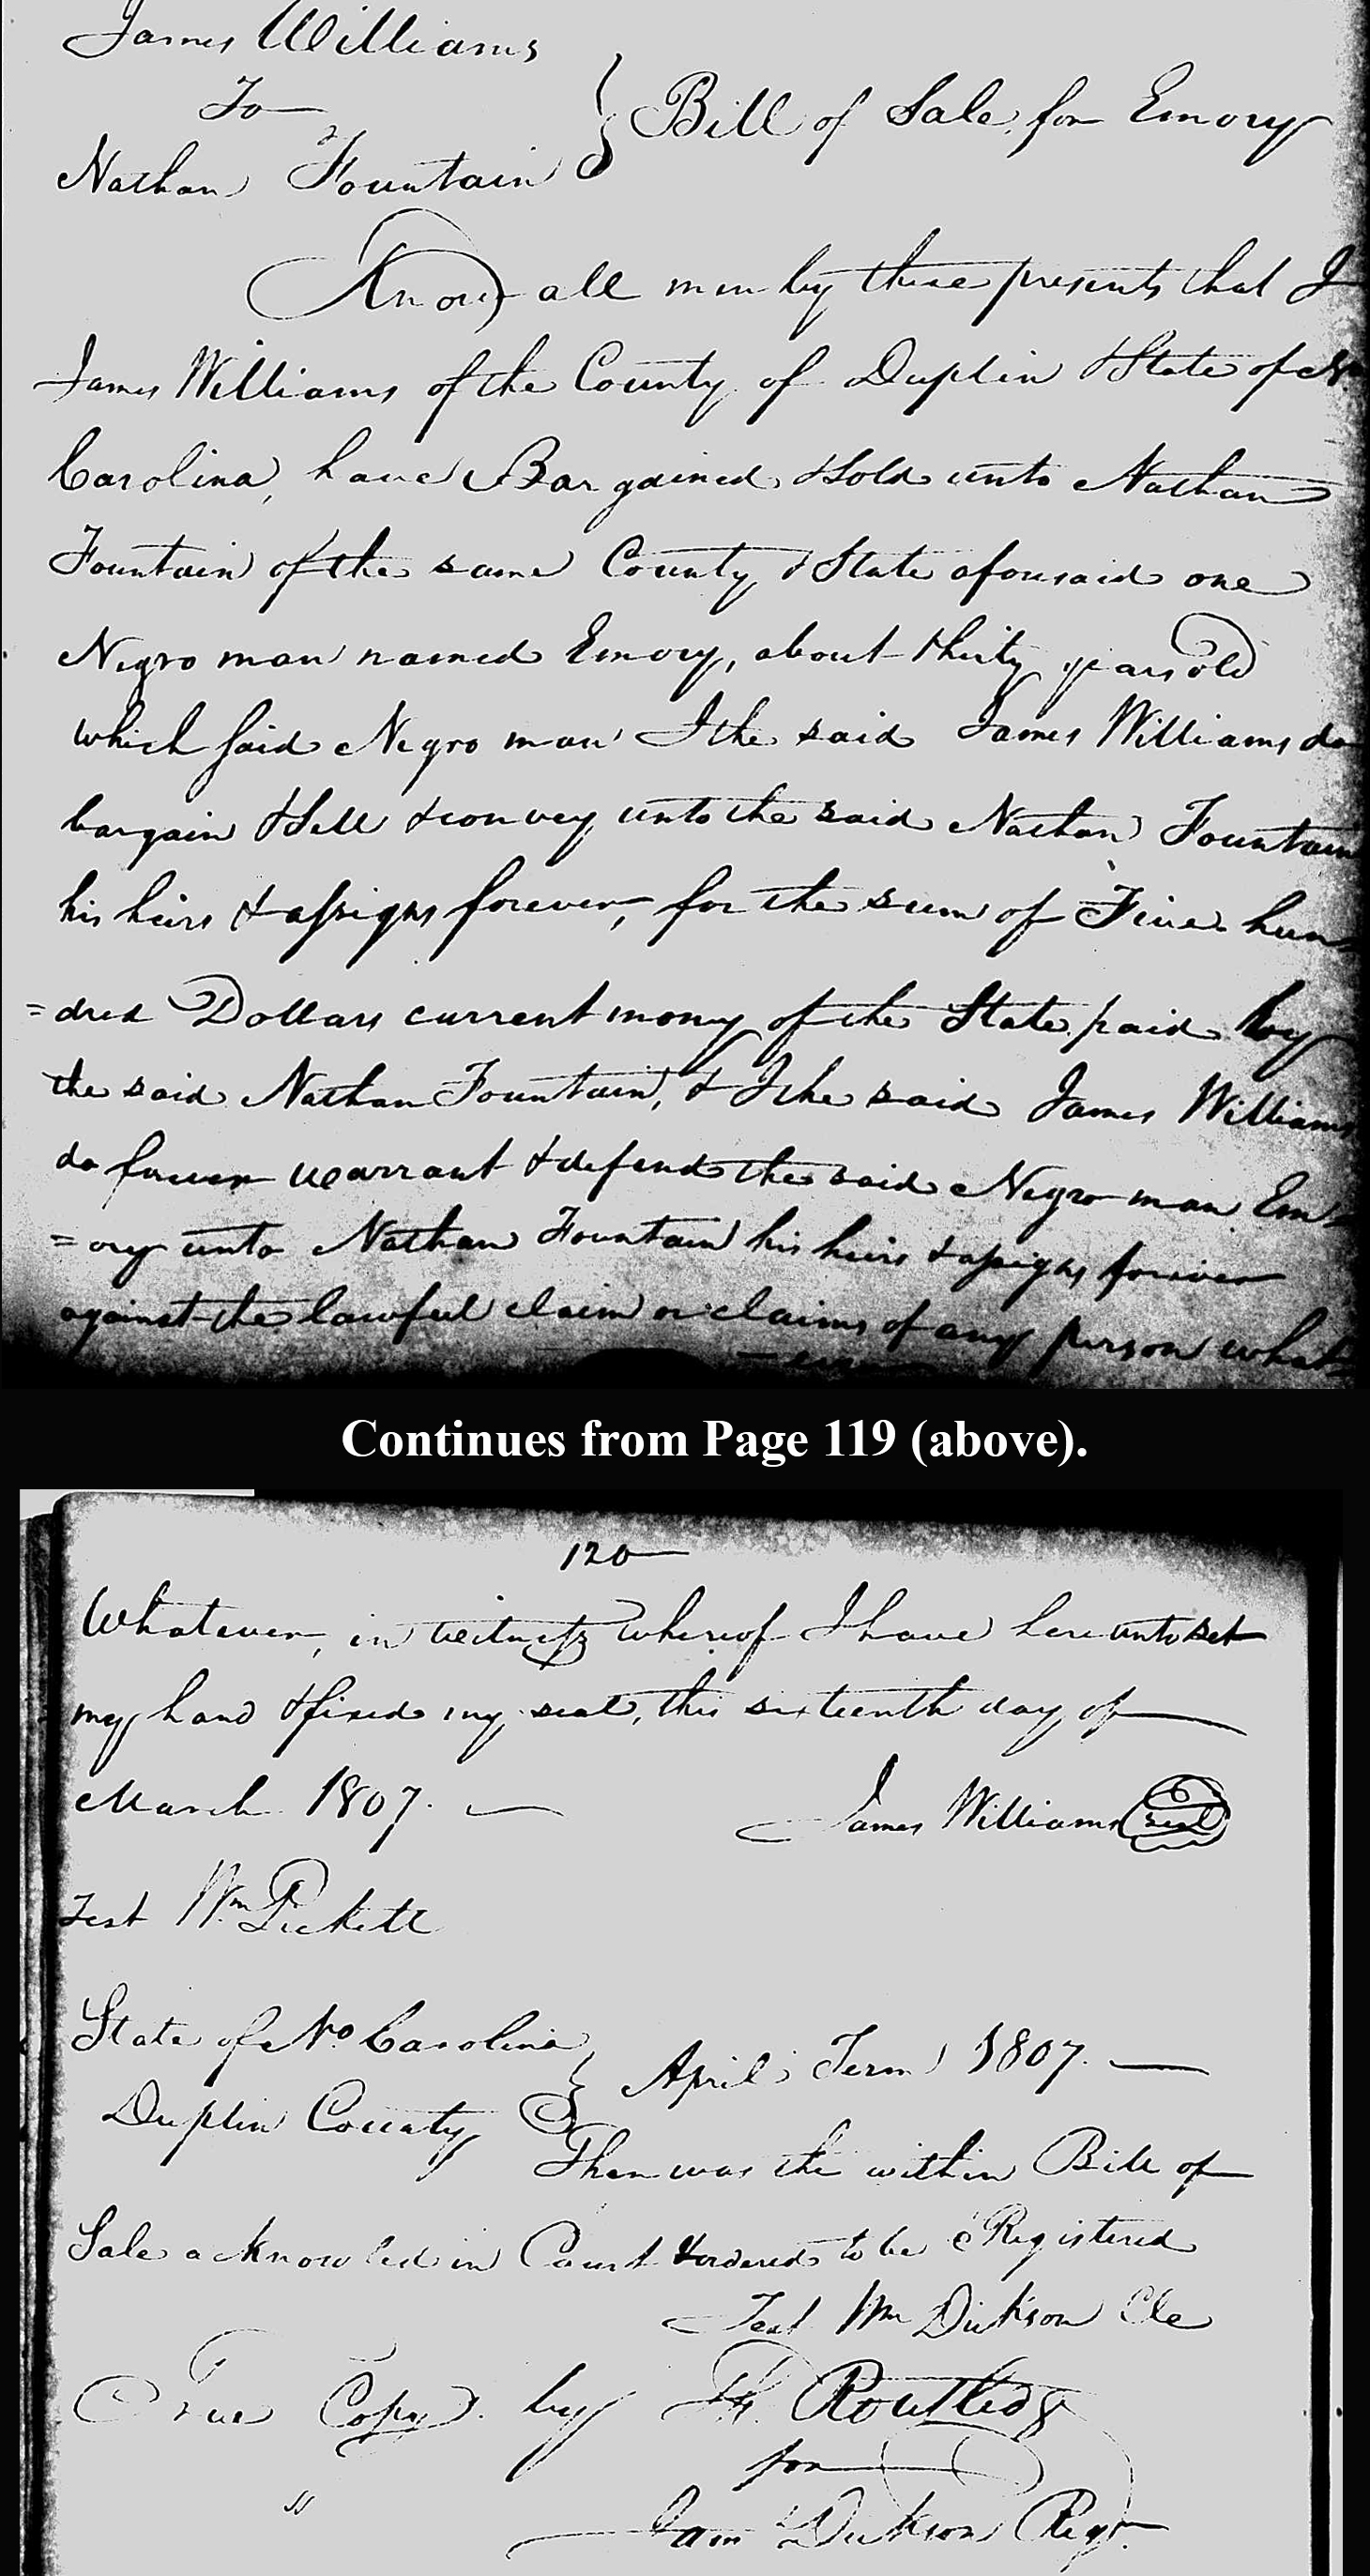 James Williams
To
Nathan Fountain } Bill of Sale for Emory
Know all men by these presents that I
James Williams of the County of Duplin & State of No
Carolina, have Bargained & Sold unto Nathan
Fountain of the same County & State aforesaid one
Negro man named Emory, about thirty years old
which said Negro man I the said James Williams do
bargain & Sell & convey unto the said Nathan Fountain
his heirs & assigns forever, for the sum of Five hun=
=dred Dollars current mony of the State paid by
the said Nathan Fountain, & I the said James Williams
do forever warrant & defend the said Negro man Em=
=ory unto Nathan Fountain his heirs & assigns forever
against the lawful claim or claims of any person what=
Continues from Page 119 (above).
120
Whatever, in witness whereof I have hereunto set
my hand & fixed my seal, this sixteenth day of
March 1807. James Williams seal
Test Wm Pickett
State of No. Carolina
Duplin County } April Term 1807.
Then was the within Bill of
Sale acknowled in Court & ordered to be Registered
Test Wm Dickson Cle
True Copy. by Th. Routledg
for
Jam Dickson Regr.